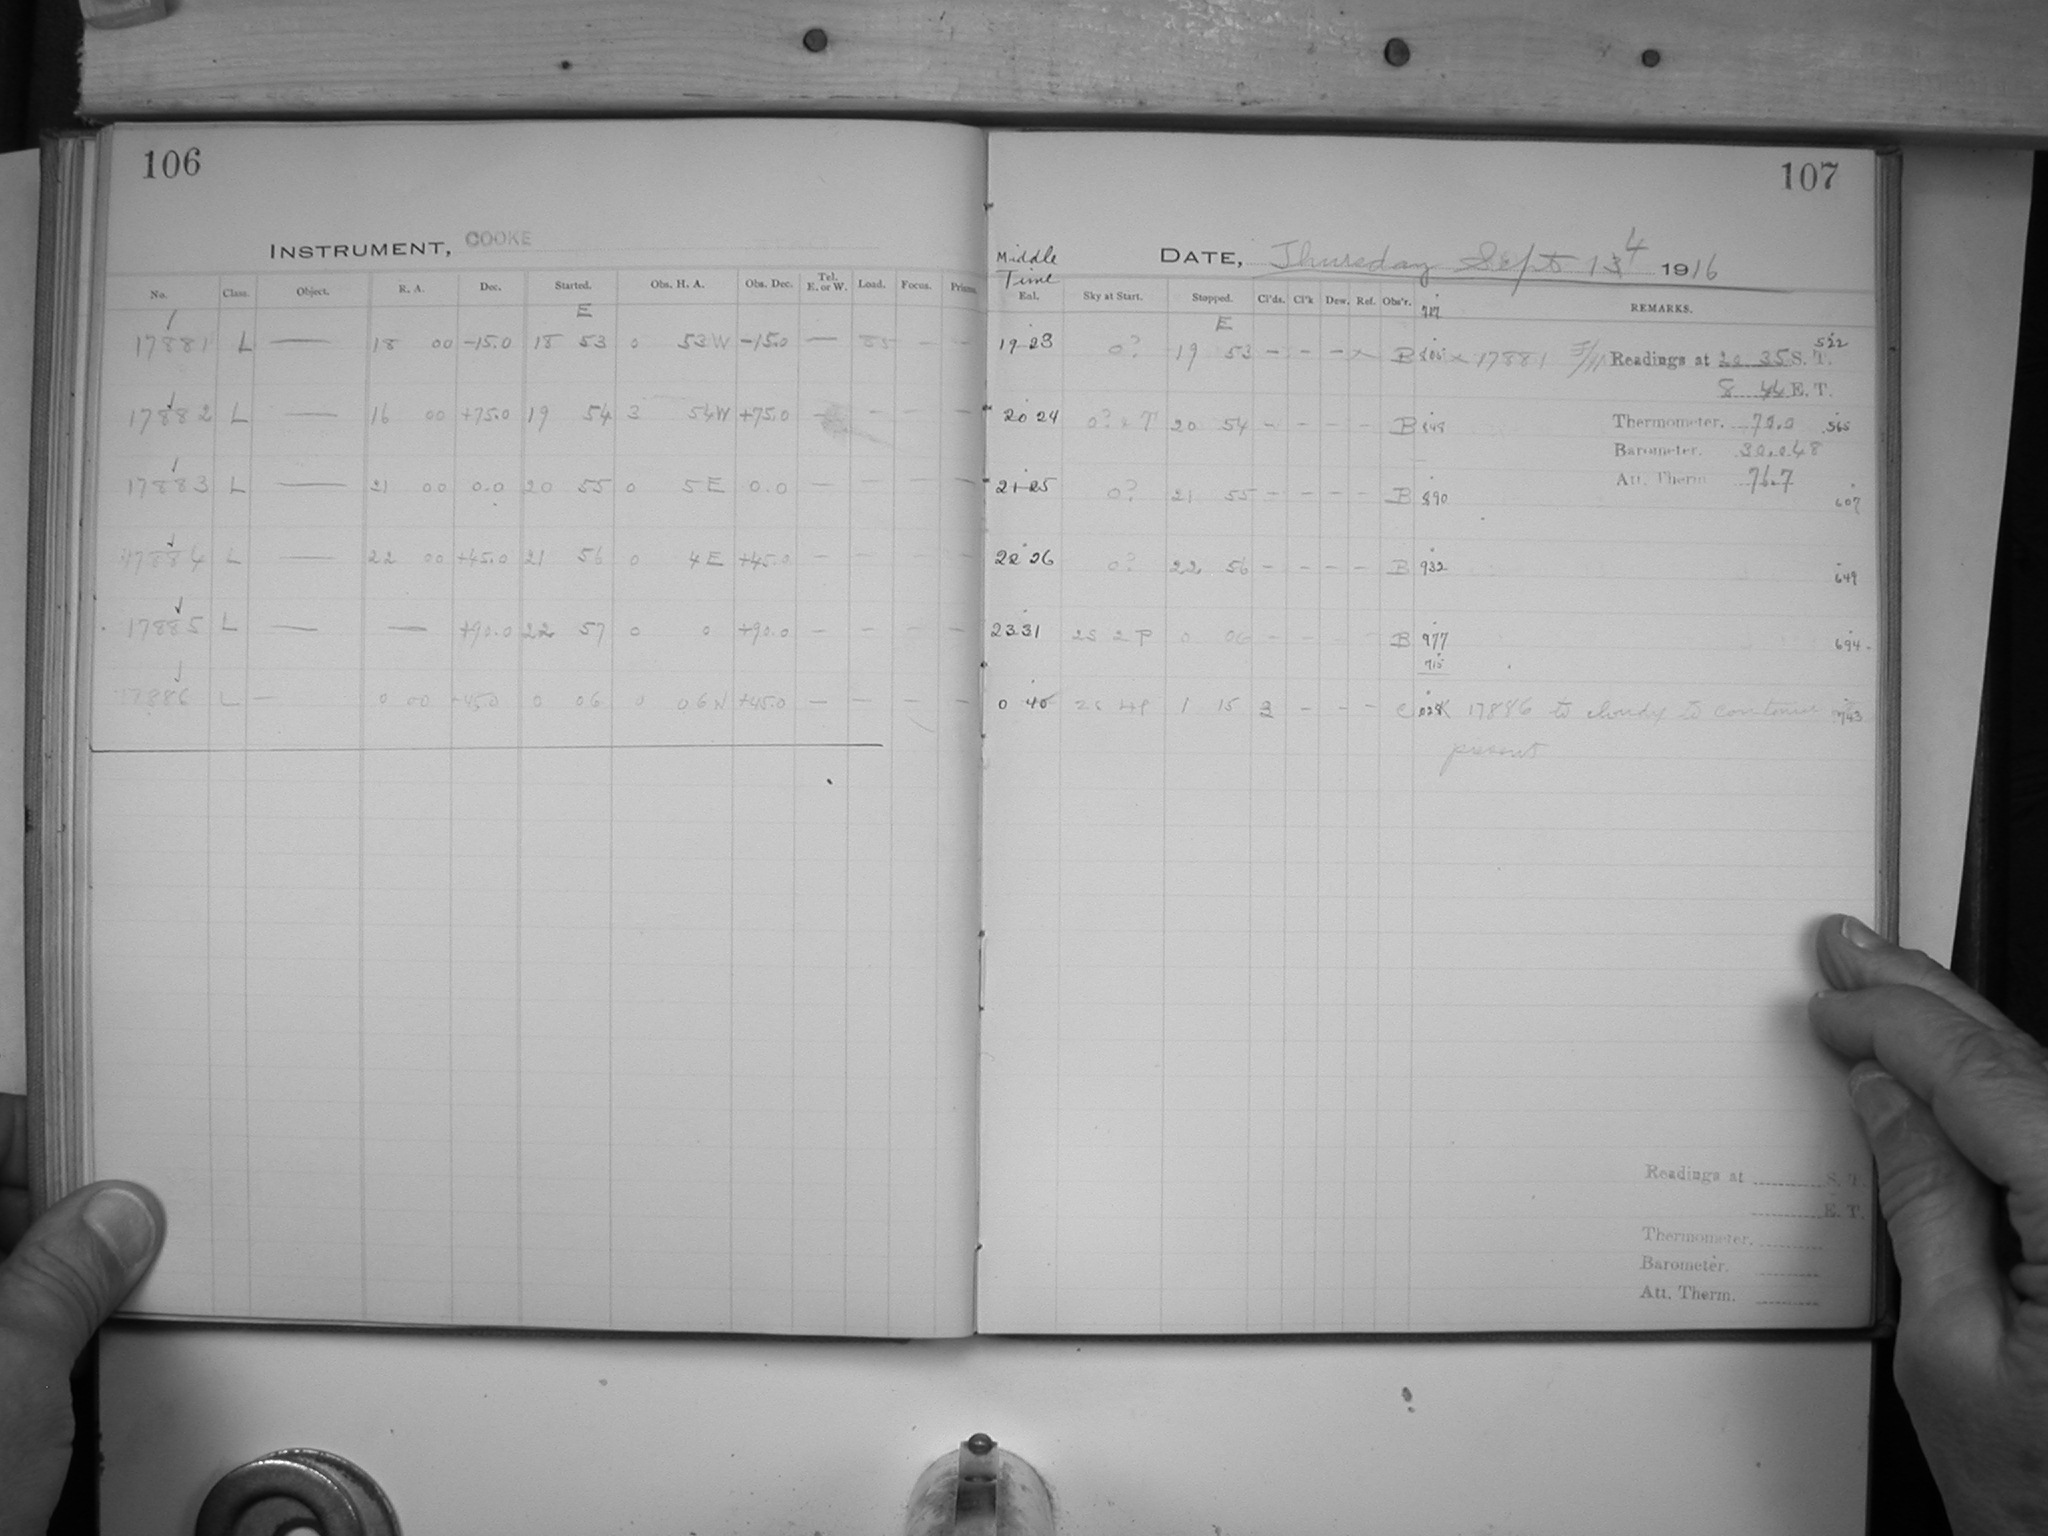 106
INSTRUMENT, COOKE
No. Class. Object. R. A. Dec. Started. Obs. H. A. Obs. Dec. Tel. E. or W. Load. Focus. Prisms
E
17881 L — 18 00 -15.0 18 53 0 53W -15.0 — — —
17882 L — 16 00 +75.0 19 54 3 54W +75.0 — — — —
17883 L — 21 00 0.0 20 55 0 5E 0.0 — — — —
17884 L — 22 00 +45.0 21 56 0 4E +45.0 — — — —
17885 L — — +90.0 22 57 0 0 +90.0 — — — —
17886 L — 0 00 +45.0 0 06 0 06W +45.0 — — — —
107
DATE, Thursday Sept 14 1916
Middle Time
Enl. Sky at Start. Stopped. Cl'ds. Cl'k Dew. Ref. Obs'r. REMARKS.
E
19 23 0? 19 53 - - - x B x 17881 522
Readings at 20 35 S. T.
8 44 E. T.
20 24 20 54 - - - - B 848 565
Thermometer.
Barometer. 30.048
Att. Therm 76.7
21 25 0? 21 55 - - - - B 890 607
22 26 0? 22 56 - - - - B 932 649
23 31 2S 2P 0 06 - - - B 977 694
715
0 40 2S 4P 1 15 3 - - - C 17886 to cloudy to continue 743
present
Readings at S. T.
E. T.
Thermometer.
Barometer.
Att. Therm.